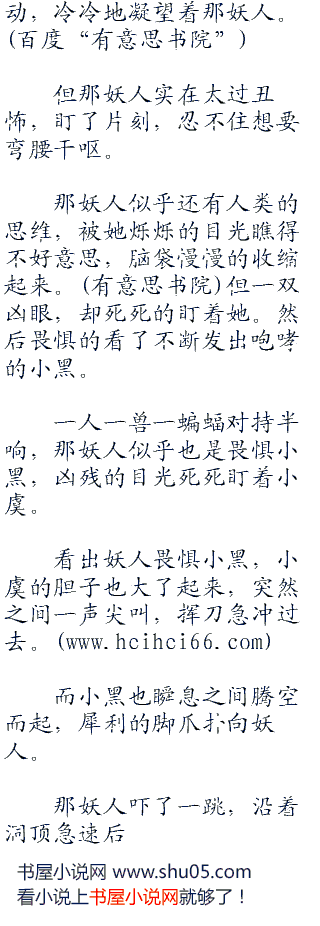 动，冷冷地凝望着那妖人。
(百度“有意思书院”)
但那妖人实在太过丑
怖，盯了片刻，忍不住想要
弯腰干呕。
那妖人似乎还有人类的
思维，被她烁烁的目光瞧得
不好意思，脑袋漫漫的收缩
起来。(有意思书院)但一双
凶眼，却死死的盯着她。然
后畏惧的看了不断发出咆哮
的小黑。
一人一兽一蝙蝠对持半
响，那妖人似乎也是畏惧小
黑，凶残的目光死死盯着小
虞。
看出妖人畏惧小黑，小
虞的胆子也大了起来，突然
之间一声尖叫，挥刀急冲过
去。(www.hcihci66.com)
而小黑也瞬息之间腾空
而起，犀利的脚爪扑向妖
人。
那妖人吓了一跳，沿着
洞顶急速后
书屋小说网 www.shu05.com
看小说上书屋小说网就够了！